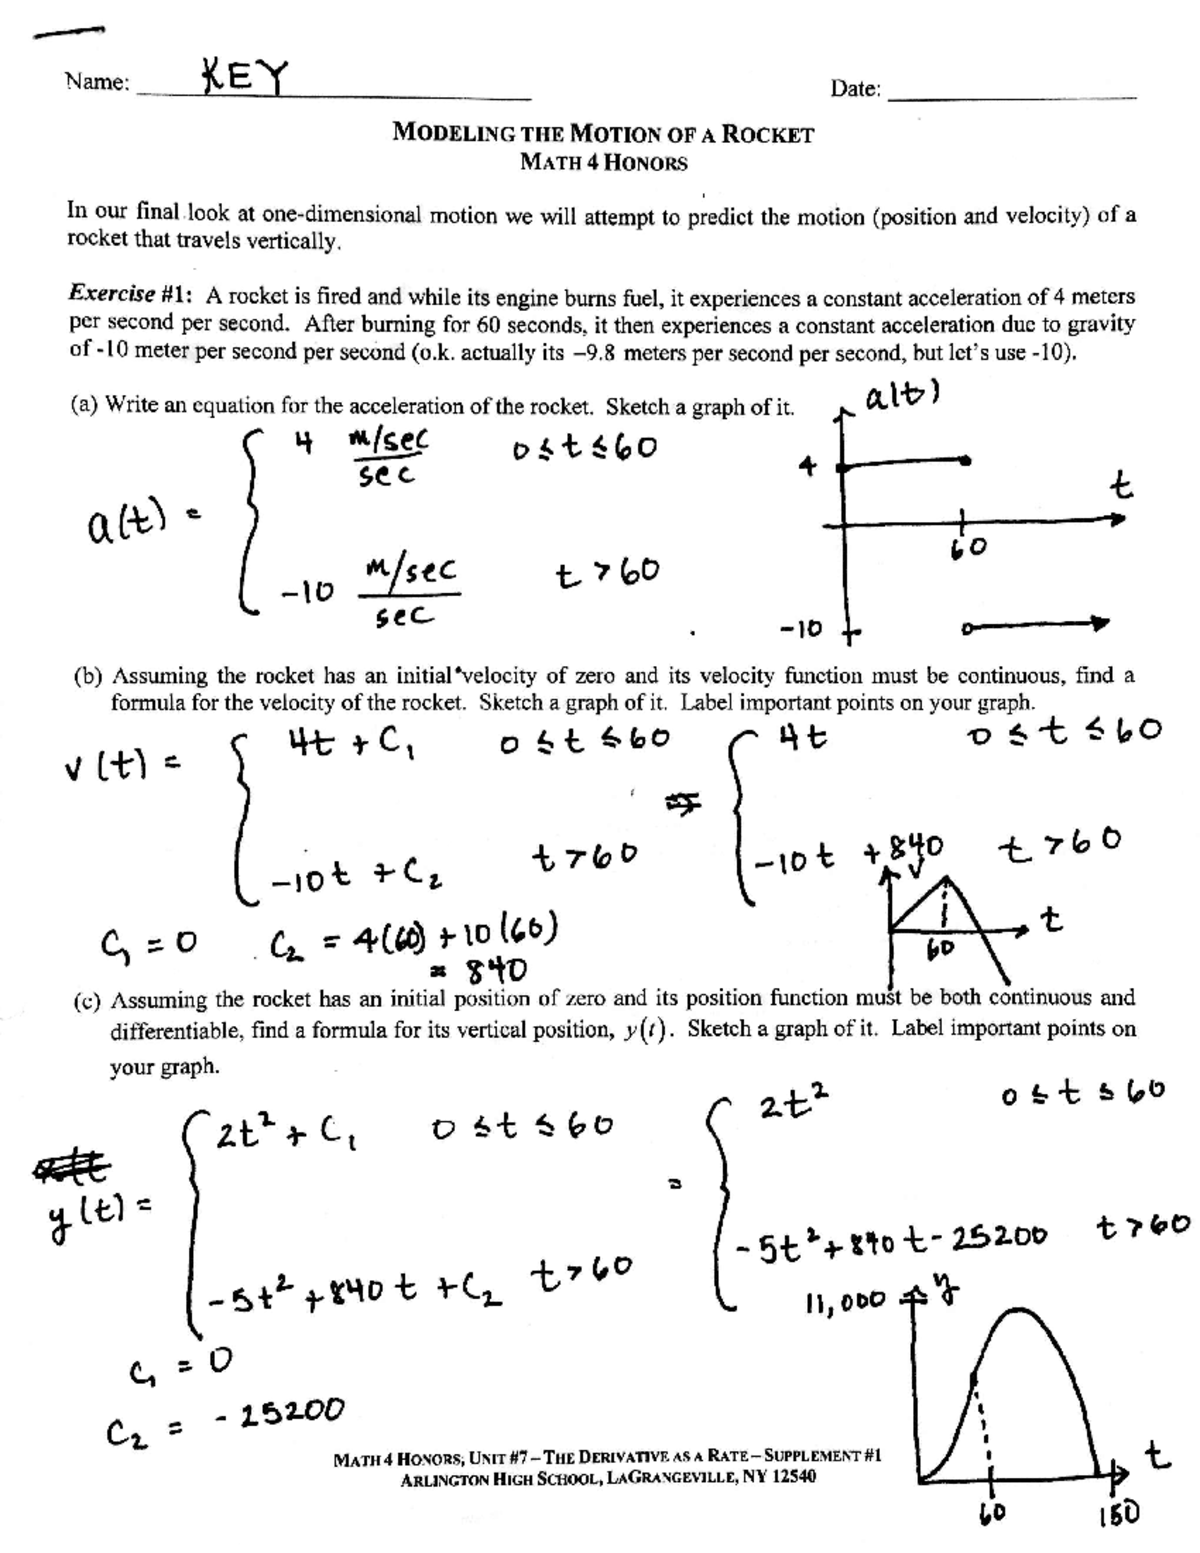 Name: KEY Date:
MODELING THE MOTION OF A ROCKET
MATH 4 HONORS
In our final look at one-dimensional motion we will attempt to predict the motion (position and velocity) of a
rocket that travels vertically.
Exercise #1: A rocket is fired and while its engine burns fuel, it experiences a constant acceleration of 4 meters
per second per second. After burning for 60 seconds, it then experiences a constant acceleration due to gravity
of -10 meter per second per second (o.k. actually its –9.8 meters per second per second, but let's use -10).
(a) Write an equation for the acceleration of the rocket. Sketch a graph of it.
a(t)
4 m/sec 0 ≤ t ≤ 60
sec
4
t
a(t) =
60
-10 m/sec t > 60
sec
-10
(b) Assuming the rocket has an initial velocity of zero and its velocity function must be continuous, find a
formula for the velocity of the rocket. Sketch a graph of it. Label important points on your graph.
v(t) = 4t + C₁ 0 ≤ t ≤ 60 4t 0 ≤ t ≤ 60
-10t + C₂ t > 60 -10t + 840 t > 60
v
t
60
C₁ = 0 C₂ = 4(60) + 10(60)
= 840
(c) Assuming the rocket has an initial position of zero and its position function must be both continuous and
differentiable, find a formula for its vertical position, y(t). Sketch a graph of it. Label important points on
your graph.
2t² + C₁ 0 ≤ t ≤ 60 2t² 0 ≤ t ≤ 60
y(t) = =
-5t² + 840t + C₂ t > 60 -5t² + 840t - 25200 t > 60
11,000 y
C₁ = 0
C₂ = -25200
t
60 150
MATH 4 HONORS, UNIT #7 – THE DERIVATIVE AS A RATE – SUPPLEMENT #1
ARLINGTON HIGH SCHOOL, LAGRANGEVILLE, NY 12540